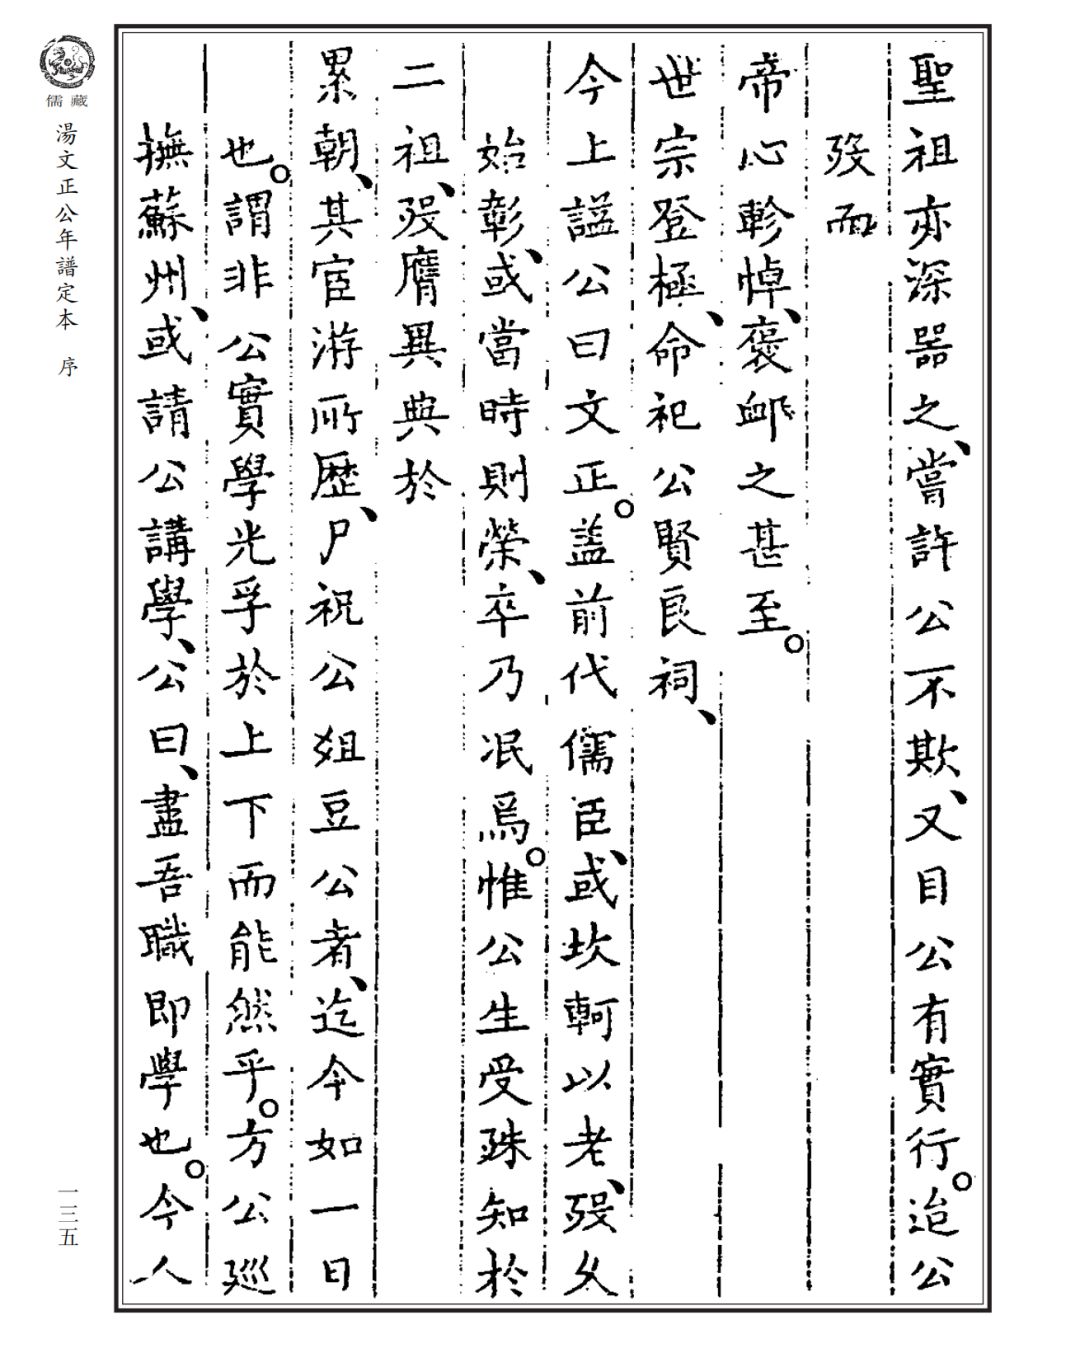 聖祖亦深器之、嘗許公不欺、又目公有實行。迨公
歿而
帝心軫悼、褒邺之甚至。
世宗登極、命祀公賢良祠、
今上諡公曰文正。盖前代儒臣、或坎軻以老、歿乆
始彰、或當時則榮、卒乃泯焉。惟公生受殊知於
二祖、歿膺異典於
累朝、其宦游所歷、尸祝公俎豆公者、迄今如一日
也。謂非公實學光孚於上下而能然乎。方公廵
撫蘇州、或請公講學、公曰、盡吾職即學也。今人
儒藏
湯文正公年譜定本　序
一三五